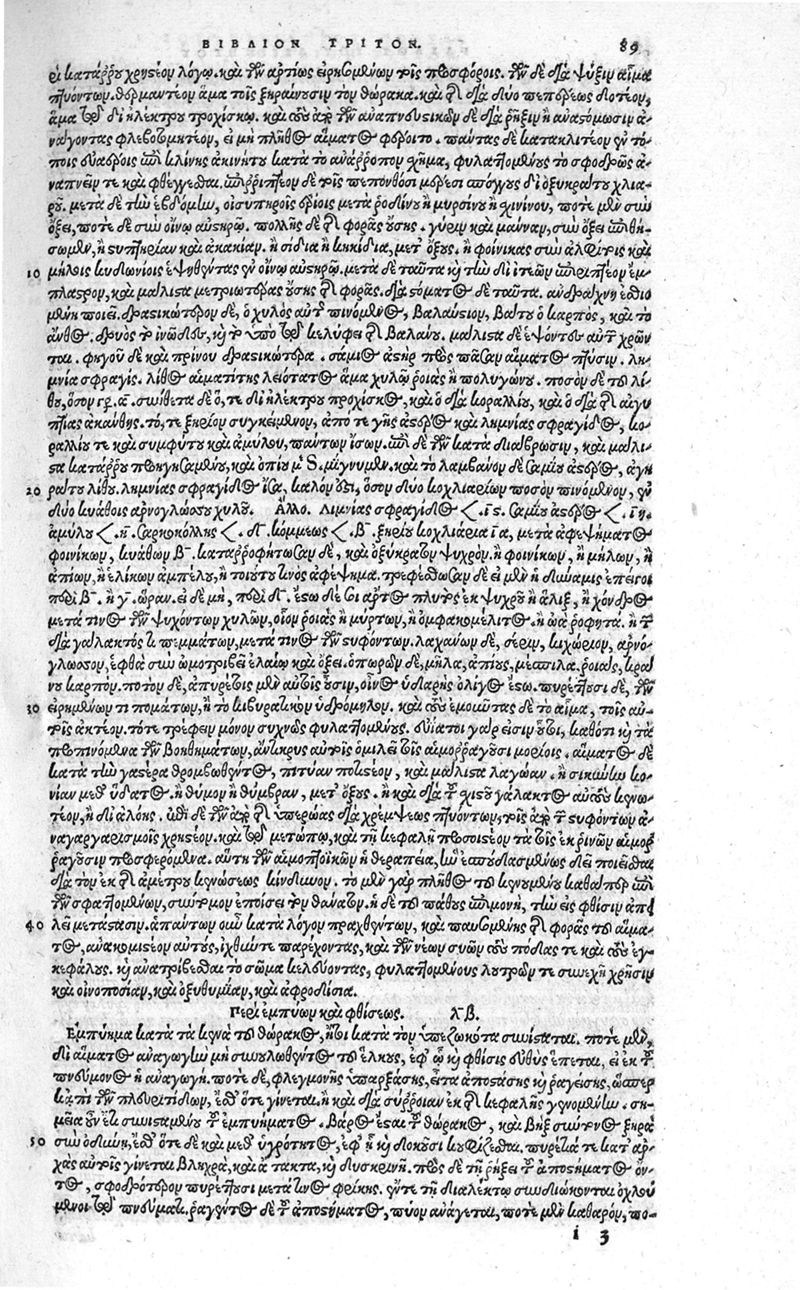 ΒΙΒΛΙΟΝ ΤΡΙΤΟΝ. 89
ρὶ κατάρρου χρηστέον λόγῳ. καὶ τῶν ἀρτίως εἰρημένων τοῖς προσφόροις. τῶν δὲ διὰ ψύξιν αἷμα
πτυόντων. θερμαντέον ἅμα τοῖς ξηραίνουσιν τὸν θώρακα. καὶ τὸ διὰ δύο πεπέρεως δοτέον,
ἅμα τῷ δι' ἠλέκτρου τροχίσκῳ. καὶ τοὺς ἀπὸ τῶν ἀναπνευστικῶν δὲ διὰ ῥῆξιν ἢ ἀναστόμωσιν ἀ-
νάγοντας φλεβοτμητέον, εἰ μὴ πλῆθος αἵματος φέροιτο. πάντας δὲ κατακλιτέον ἐν τό-
ποις εὐαέροις ἐπὶ κλίνης ἀκινήτου κατὰ τὸ ἀνάρροπον σχῆμα, φυλαττομένους τὸ σφοδρῶς ἀ-
ναπνεῖν τε καὶ φθέγγεσθαι. ἐπιρριπτέον δὲ τοῖς πεπονθόσι μέρεσι σπόγγους δι' ὀξυκράτου χλια-
ροῦ. μετὰ δὲ τὴν ἑβδόμην, οἰσυπηροῖς ἐρίοις μετὰ ῥοδίνου ἢ μυρσίνου ἢ σχινίνου, ποτὲ μὲν σὺν
ὄξει, ποτὲ δὲ σὺν οἴνῳ αὐστηρῷ. πολλῆς δὲ τῆς φορᾶς οὔσης. γῦριν καὶ μάνναν, σὺν ὄξει ἐπιθή-
σωμεν, ἢ στυπτηρίαν καὶ ἀκακίαν. ἢ σίδια ἢ κηκίδια, μετ' ὄξους. ἢ φοίνικας σὺν ἀλφίτοις καὶ
10 μήλοις κυδωνίοις ἑψηθέντας ἐν οἴνῳ αὐστηρῷ. μετὰ δὲ ταῦτα καὶ τὴν δι' ἰτεῶν ἐπιρριπτέον ἔμ-
πλαστρον, καὶ μάλιστα μετριωτέρας οὔσης τῆς φορᾶς. διὰ στόματος δὲ ταῦτα. ἀνδράχνη ἐσθιο
μένη ποιεῖ. δραστικώτερον δὲ, ὁ χυλὸς αὐτῆς πινόμενος, βαλαύστιον, βάτου ὁ καρπὸς, καὶ τὸ
ἄνθος. δρυὸς τὸ ἰνῶδες, καὶ τὸ ὑπὸ τῷ κελύφει τῆς βαλάνου. μάλιστα δὲ ἕψοντες αὐτὰ χρῶν
ται. φηγοῦ δὲ καὶ πρίνου δραστικώτερα. σάμιος ἀστὴρ πρὸς πᾶσαν αἵματος πτύσιν. λη-
μνία σφραγίς. λίθος αἱματίτης λειότατος ἅμα χυλῷ ῥοιᾶς ἢ πολυγώνου. ποσὸν δὲ τοῦ λί-
θου, ὅσον γρ. α. σύνθετα δὲ ὅ, τε δι' ἠλέκτρου τροχίσκος, καὶ ὁ διὰ κοραλλίου, καὶ ὁ διὰ τῆς αἰγυ
πτίας ἀκάνθης. τό, τε ξηρίον συγκείμενον, ἀπό τε γῆς ἀστέρος καὶ λημνίας σφραγῖδος, κο-
ραλλίου τε καὶ συμφύτου καὶ ἀμύλου, πάντων ἴσων. ἐπὶ δὲ τῶν κατὰ διάβρωσιν, καὶ μάλι-
στα κατάρρου προηγησαμένου, καὶ ὀπίου μέρος μίγνυμεν. καὶ τὸ λαμβάνον δὲ σαμίου ἀστέρος, ἀγη
20 ράτου λίθου. λημνίας σφραγῖδος ἴσα, καλόν ἐστι, ὅσον δύο κοχλιαρίων ποσὸν πινόμενον, ἐν
δύο κυάθοις ἀρνογλώσσου χυλοῦ. Ἄλλο. Λιμνίας σφραγῖδος <. ιϛ. σαμίου ἀστέρος <. ιη.
ἀμύλου <. η. σαρκοκόλλης <. δ. κόμμεως <. β. ξηρίου κοχλιάρια ια, μετὰ ἀφεψήματος
φοινίκων, κυάθων β. καταρροφήτωσαν δὲ, καὶ ὀξύκρατον ψυχρὸν ἢ φοινίκων, ἢ μήλων, ἢ
ἀπίων, ἢ ἑλίκων ἀμπέλου, ἢ τοιούτου τινὸς ἀφέψημα. τρεφέσθωσαν δὲ εἰ μὲν ἡ δύναμις ἐπείγοι
περὶ β. ἢ γ. ὥραν. εἰ δὲ μὴ, περὶ δ. ἔστω δὲ σιτία ἄρτος πλυτὸς ἐκ ψυχροῦ ἢ ἄλιξ, ἢ χόνδρος
μετά τινος τῶν ψυχόντων χυλῶν, οἷον ῥοιᾶς ἢ μύρτων, ἢ ὀμφακομέλιτος. ἢ ὠὰ ῥοφητά. ἢ τὰ
διὰ γάλακτός τι πεμμάτων, μετά τινος τῶν στυφόντων. λαχάνων δὲ, σέριν, κιχώριον, ἀρνό-
γλωσσον, ἑφθὰ σὺν ὠμοτριβεῖ ἐλαίῳ καὶ ὄξει. ὀπωρῶν δὲ, μῆλα, ἀπίους, μέσπιλα. ῥοιὰς, κρα
νου καρπόν. ποτὸν δὲ, ἀπυρέτοις μὲν αὐτοῖς οὖσιν, οἶνος ὑδαρὴς ὀλίγος ἔστω. πυρέττουσι δὲ, τῶν
30 εἰρημένων τι πομάτων, ἢ τὸ λιβυρατικὸν ὑδρόμηλον. καὶ τοὺς ἐμοῦντας δὲ τὸ αἷμα, τοῖς αὐ-
τοῖς ἀκτέον. τότε τρέφειν μόνον συχνῶς φυλαττομένους. εὐίατοι γάρ εἰσιν οὗτοι, καθότι καὶ τὰ
προπινόμενα τῶν βοηθημάτων, ἄντικρυς αὐτοῖς ὁμιλεῖ τοῖς αἱμορραγοῦσι μορίοις. αἵματος δὲ
κατὰ τὴν γαστέρα θρομβωθέντος, πιτύαν ποτιστέον, καὶ μάλιστα λαγώαν. ἢ σικυΐνην κο-
νίαν μεθ' ὕδατος. ἢ θύμον ἢ θύμβραν, μετ' ὄξους. ἢ καὶ διὰ τοῦ σχιστοῦ γάλακτος αὐτοὺς κενω-
τέον, ἢ δι' ἀλόης. ἐπὶ δὲ τῶν ἀπὸ τῆς ὑπερώας διὰ χρέμψεως πτυόντων, τοῖς ἀπὸ τῶν στυφόντων ἀ-
ναγαργαρισμοῖς χρηστέον. καὶ τῷ μετώπῳ, καὶ τῇ κεφαλῇ προσοιστέον τὰ τοῖς ἐκ ῥινῶν αἱμορ
ραγοῦσιν προσφερόμενα. αὕτη τῶν αἱμοπτοϊκῶν ἡ θεραπεία, ἣν ἐσπουδασμένως δεῖ ποιεῖσθαι
διὰ τὸν ἐκ τῆς ἀμέτρου κενώσεως κίνδυνον. τὸ μὲν γὰρ πλῆθος τοῦ κενουμένου καθάπερ ἐπὶ
τῶν σφαττομένων, σύντομον ἐποίσει τὸν θάνατον. ἡ δὲ τοῦ πάθους ἐπιμονὴ, τὴν εἰς φθίσιν ἀπει
40 λεῖ μετάστασιν. ἁπάντων οὖν κατὰ λόγον πραχθέντων, καὶ παυσαμένης τῆς φορᾶς τοῦ αἵμα-
τος, ἀνακομιστέον αὐτοὺς, ἰχθῦν τε παρέχοντας, καὶ τῶν νέων συῶν τοὺς πόδας τε καὶ τοὺς ἐγ-
κεφάλους. καὶ ἀνατρίβεσθαι τὸ σῶμα κελεύοντας, φυλαττομένους λουτρῶν τε συνεχῆ χρῆσιν
καὶ οἰνοποσίαν, καὶ ὀξυθυμίαν, καὶ ἀφροδίσια.
Περὶ ἐμπύων καὶ φθίσεως. λβ.
Ἐμπύημα κατὰ τὰ κενὰ τοῦ θώρακος, ἤτοι κατὰ τὸν ὑπεζωκότα συνίσταται. ποτὲ μὲν,
δι' αἵματος ἀναγωγὴν μὴ συνουλωθέντος τοῦ ἕλκους, ἐφ' ᾧ καὶ φθίσις εὐθὺς ἕπεται, εἰ ἐκ τοῦ
πνεύμονος ἡ ἀναγωγή. ποτὲ δὲ, φλεγμονῆς ὑπαρξάσης, εἶτα ἀποστάσης καὶ ῥαγείσης, ὥσπερ
κἀπὶ τῶν πλευριτίδων, ἔσθ' ὅτε γίνεται. ἢ καὶ διὰ σύρροιαν ἐκ τῆς κεφαλῆς γενομένην. ση-
μεῖα οὖν ἔτι συνισταμένου τοῦ ἐμπυήματος. βάρος ἔσται τοῦ θώρακος, καὶ βὴξ σύντονος ξηρὰ
50 σὺν ὀδύνῃ, ἔσθ' ὅτε δὲ καὶ μεθ' ὑγρότητος, ἐφ' ᾗ καὶ δοκοῦσι κουφίζεσθαι. πυρετιά τε κατ' ἀρ-
χὰς αὐτοῖς γίνεται βληχρὰ, καὶ ἄτακτα, καὶ δυσκρινῆ. πρὸς δὲ τῇ ῥήξει τοῦ ἀποστήματος ὄν-
τος, σφοδρότερον πυρέττουσι μετά τινος φρίκης. ἔν τε τῇ διαλέκτῳ συνδιώκονται ὀχλού
μενοι τῷ πνεύματι. ῥαγέντος δὲ τοῦ ἀποστήματος, πύον ἀνάγεται, ποτὲ μὲν καθαρὸν, πο-
i 3